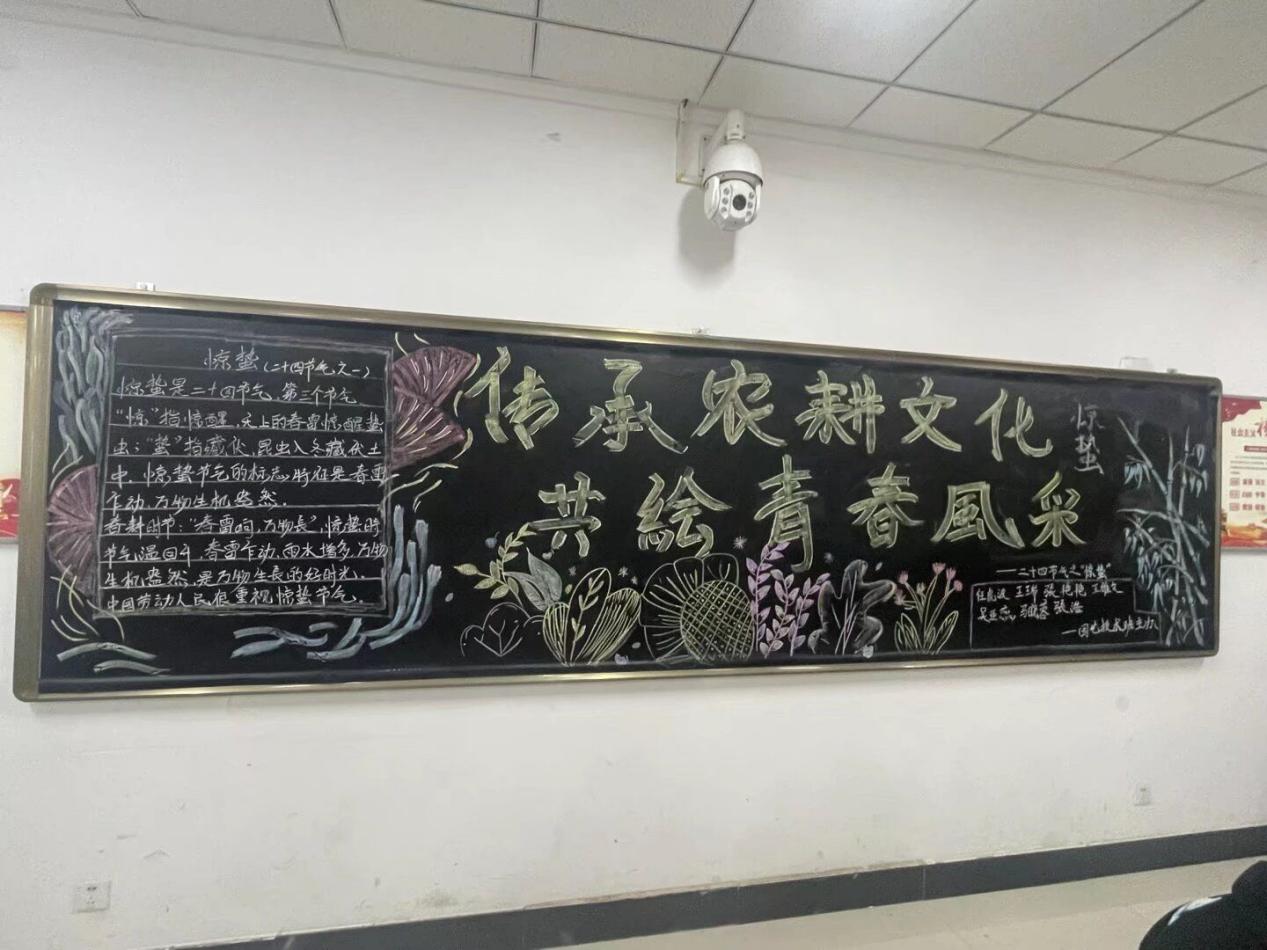 惊蛰(二十四节气之一)
惊蛰是二十四节气、第三个节气
"惊"指惊醒,天上的春雷惊醒蛰
虫;"蛰"指藏伏,昆虫入冬藏伏土
中,惊蛰节气的标志特征是春雷
乍动、万物生机盎然.
春耕时节:"春雷响,万物長",惊蛰时
节气温回升,春雷乍动、雨水增多,万物
生机盎然,是万物生長的好时光。
中国劳动人民很重视惊蛰节气.
传承农耕文化
共繪青春風采
惊蛰
——二十四节气之"惊蛰"
王瑞 張艳艳
張浩